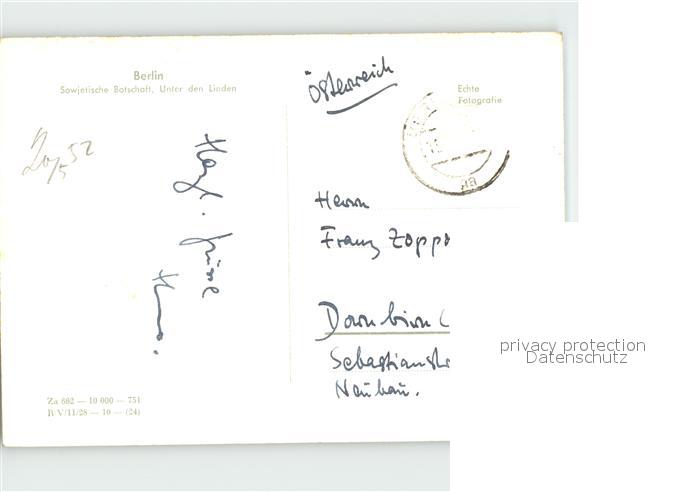 Berlin
Sowjetische Botschaft, Unter den Linden
Österreich
Echte
Fotografie
20/5 52
Herzl. Grüße
Herrn
Franz Zoppo
Dornbirn (
Sebastianstr
Neubau.
privacy protection
Datenschutz
Za 602 — 10 000 — 751
R V/11/28 — 10 — (24)